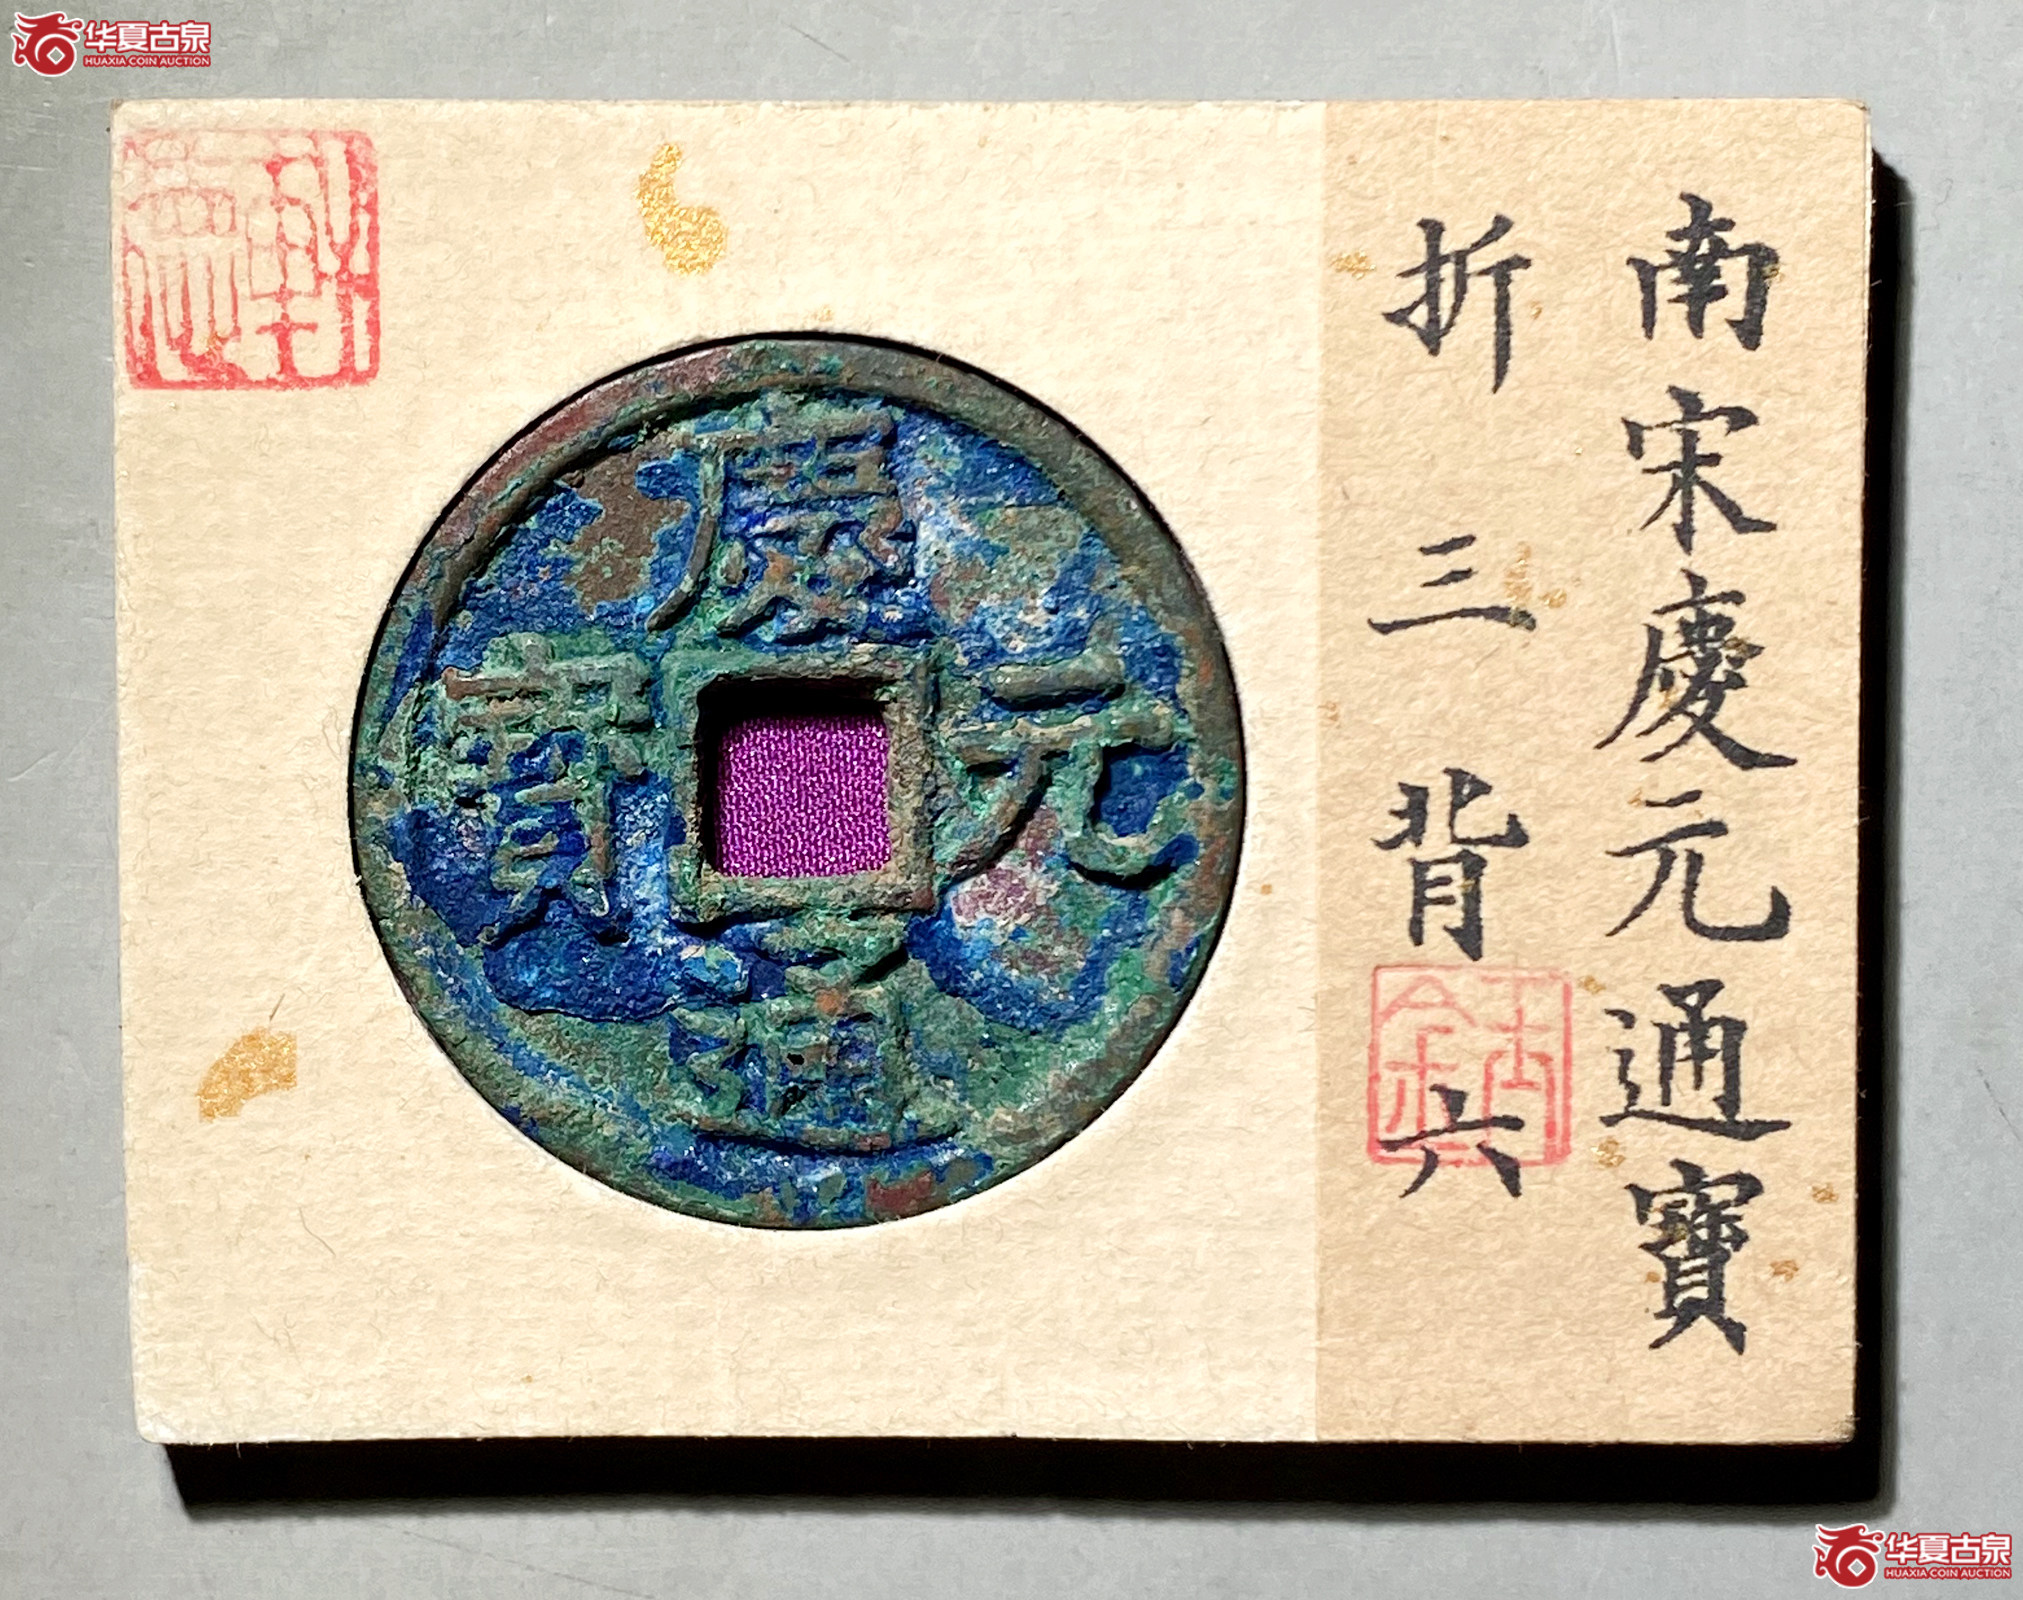 华夏古泉
HUAXIA COIN AUCTION
南宋慶元通寶
折三背六
慶元通寶
华夏古泉
HUAXIA COIN AUCTION